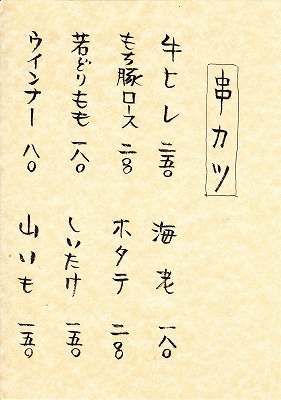 串カツ
牛ヒレ 二五〇
もち豚ロース 二〇〇
若どりもも 一八〇
ウインナー 八〇
海老 一八〇
ホタテ 二〇〇
しいたけ 一五〇
山いも 一五〇